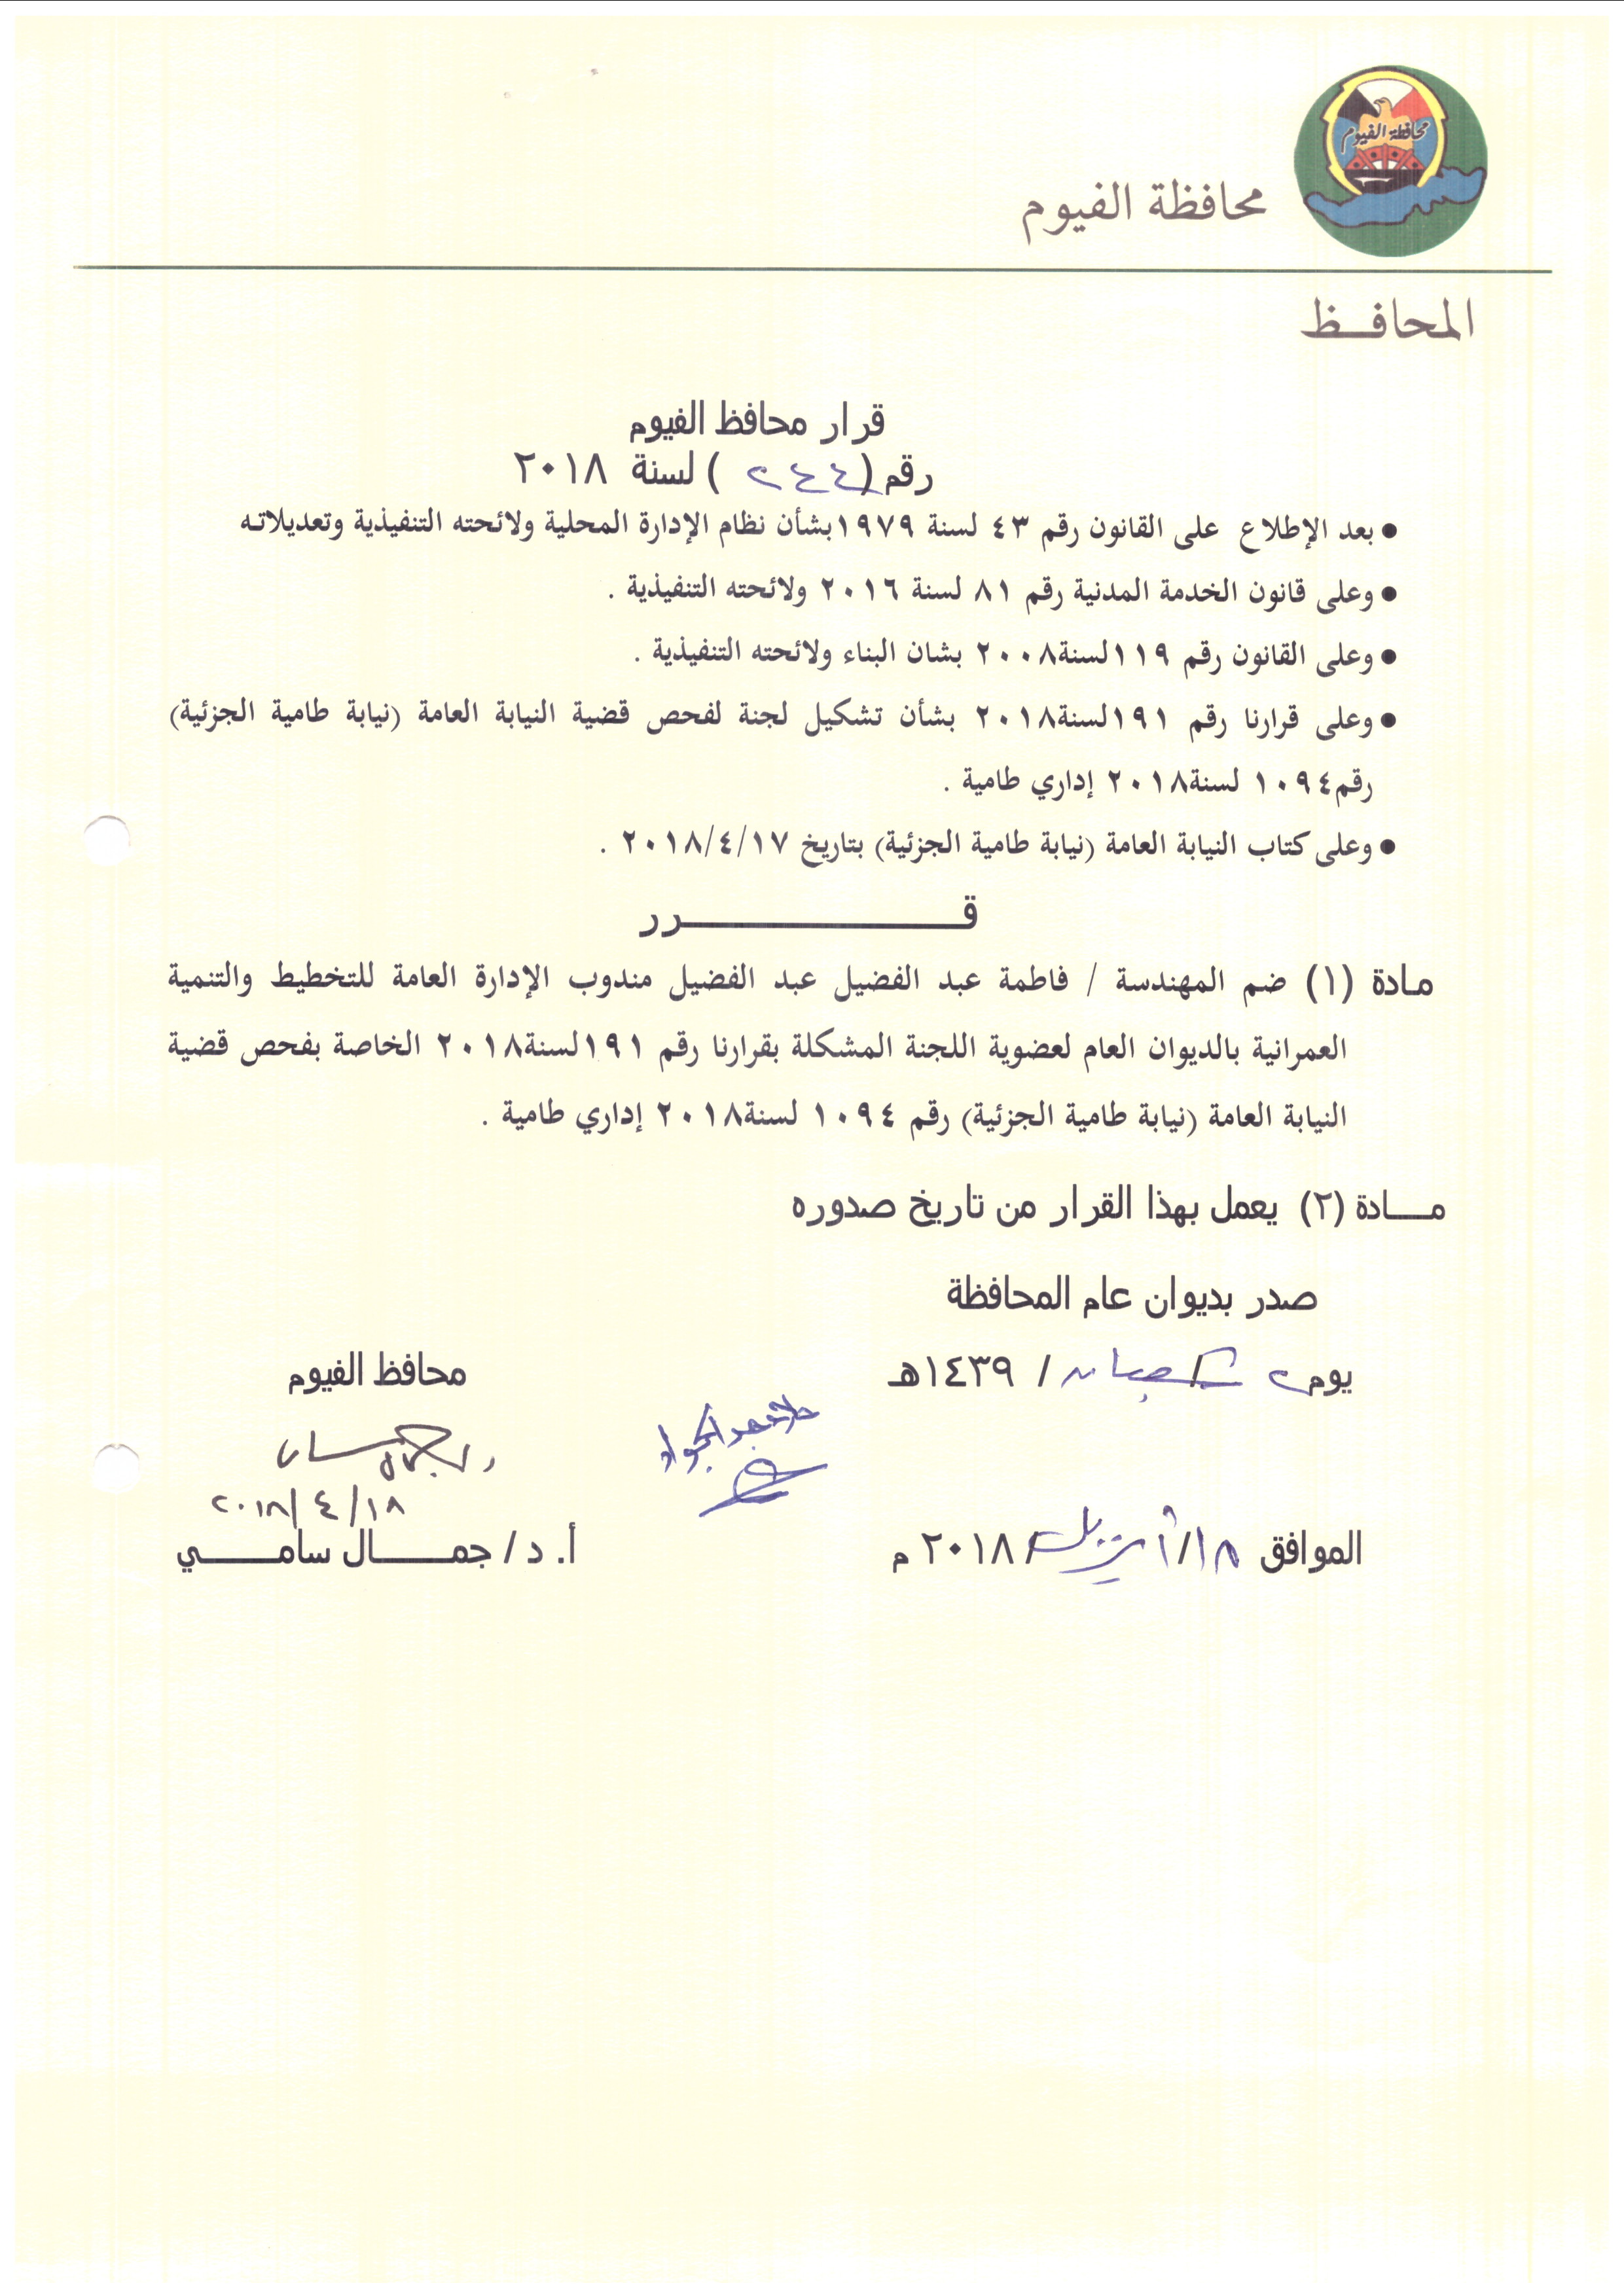 محافظة الفيوم
محافظة الفيوم
المحافــظ
قرار محافظ الفيوم
رقم (٢٤٤) لسنة ٢٠١٨
● بعد الإطلاع على القانون رقم ٤٣ لسنة ١٩٧٩بشأن نظام الإدارة المحلية ولائحته التنفيذية وتعديلاته
● وعلى قانون الخدمة المدنية رقم ٨١ لسنة ٢٠١٦ ولائحته التنفيذية .
● وعلى القانون رقم ١١٩لسنة٢٠٠٨ بشان البناء ولائحته التنفيذية .
● وعلى قرارنا رقم ١٩١لسنة٢٠١٨ بشأن تشكيل لجنة لفحص قضية النيابة العامة (نيابة طامية الجزئية)
رقم١٠٩٤ لسنة٢٠١٨ إداري طامية .
● وعلى كتاب النيابة العامة (نيابة طامية الجزئية) بتاريخ ٢٠١٨/٤/١٧ .
قـــــــــــــــــرر
مادة (١) ضم المهندسة / فاطمة عبد الفضيل عبد الفضيل مندوب الإدارة العامة للتخطيط والتنمية
العمرانية بالديوان العام لعضوية اللجنة المشكلة بقرارنا رقم ١٩١لسنة٢٠١٨ الخاصة بفحص قضية
النيابة العامة (نيابة طامية الجزئية) رقم ١٠٩٤ لسنة٢٠١٨ إداري طامية .
مـــادة (٢) يعمل بهذا القرار من تاريخ صدوره
صدر بديوان عام المحافظة
يوم ٢ شعبان / ١٤٣٩هـ
محافظ الفيوم
٢٠١٨/٤/١٨
الموافق ١٨/أبريل/ ٢٠١٨ م
أ. د / جمـــــال سامـــــي